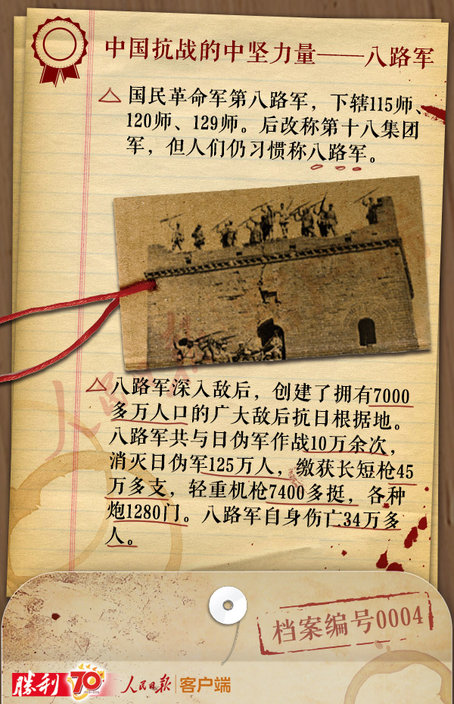 中国抗战的中坚力量——八路军
国民革命军第八路军，下辖115师、
120师、129师。后改称第十八集团
军，但人们仍习惯称八路军。
八路军深入敌后，创建了拥有7000
多万人口的广大敌后抗日根据地。
八路军共与日伪军作战10万余次，
消灭日伪军125万人，缴获长短枪45
万多支，轻重机枪7400多挺，各种
炮1280门。八路军自身伤亡34万多
人。
档案编号0004
胜利70 人民日报 客户端